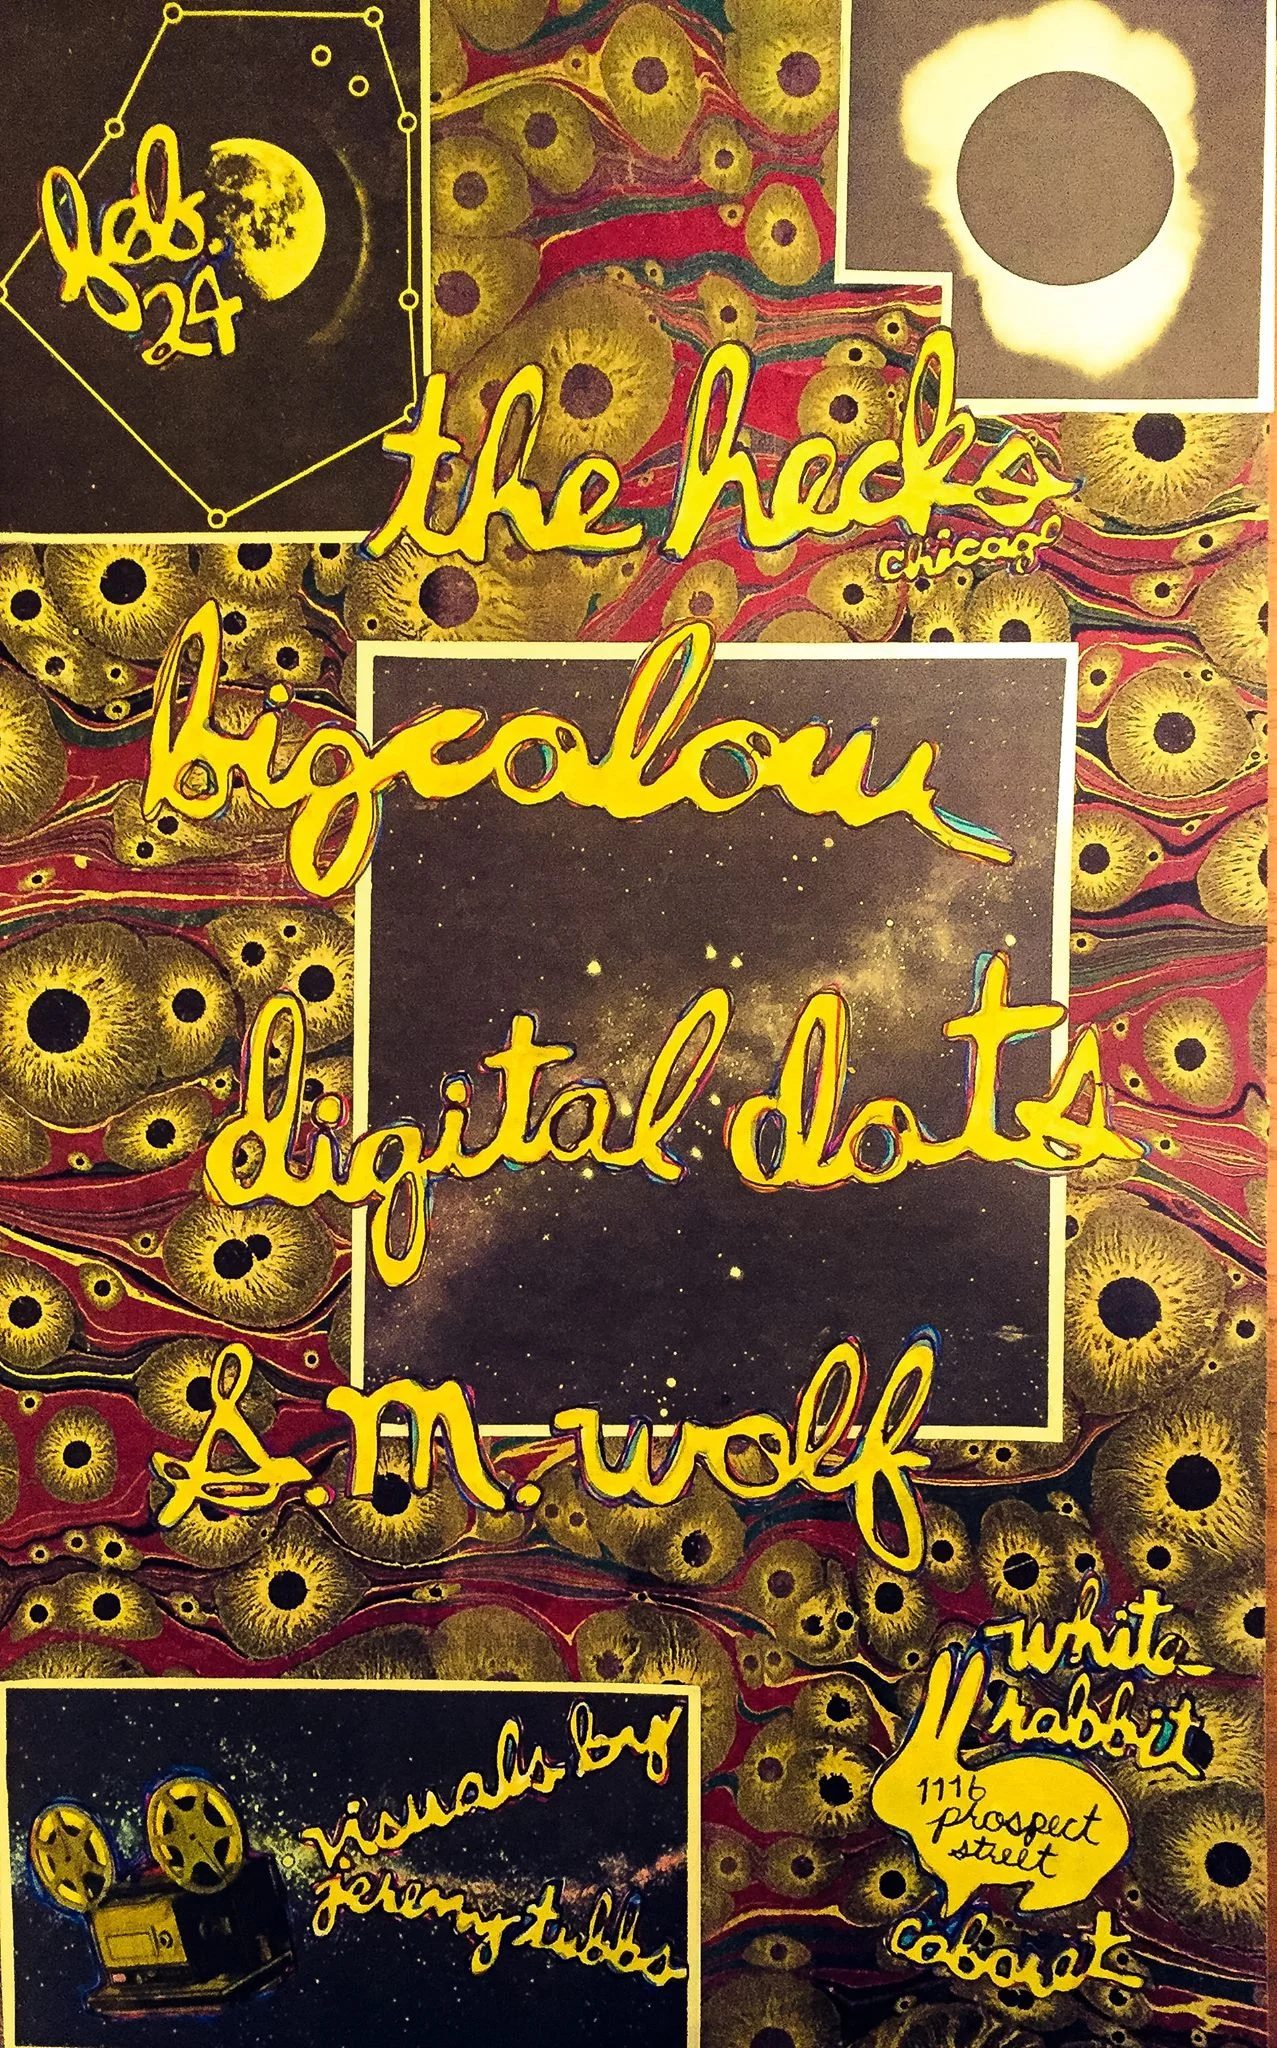 feb.
24
the hecks
chicago
bigcolour
digital dots
s.m. wolf
visuals by
jeremy tubbs
white
rabbit
1116
prospect
street
cabaret